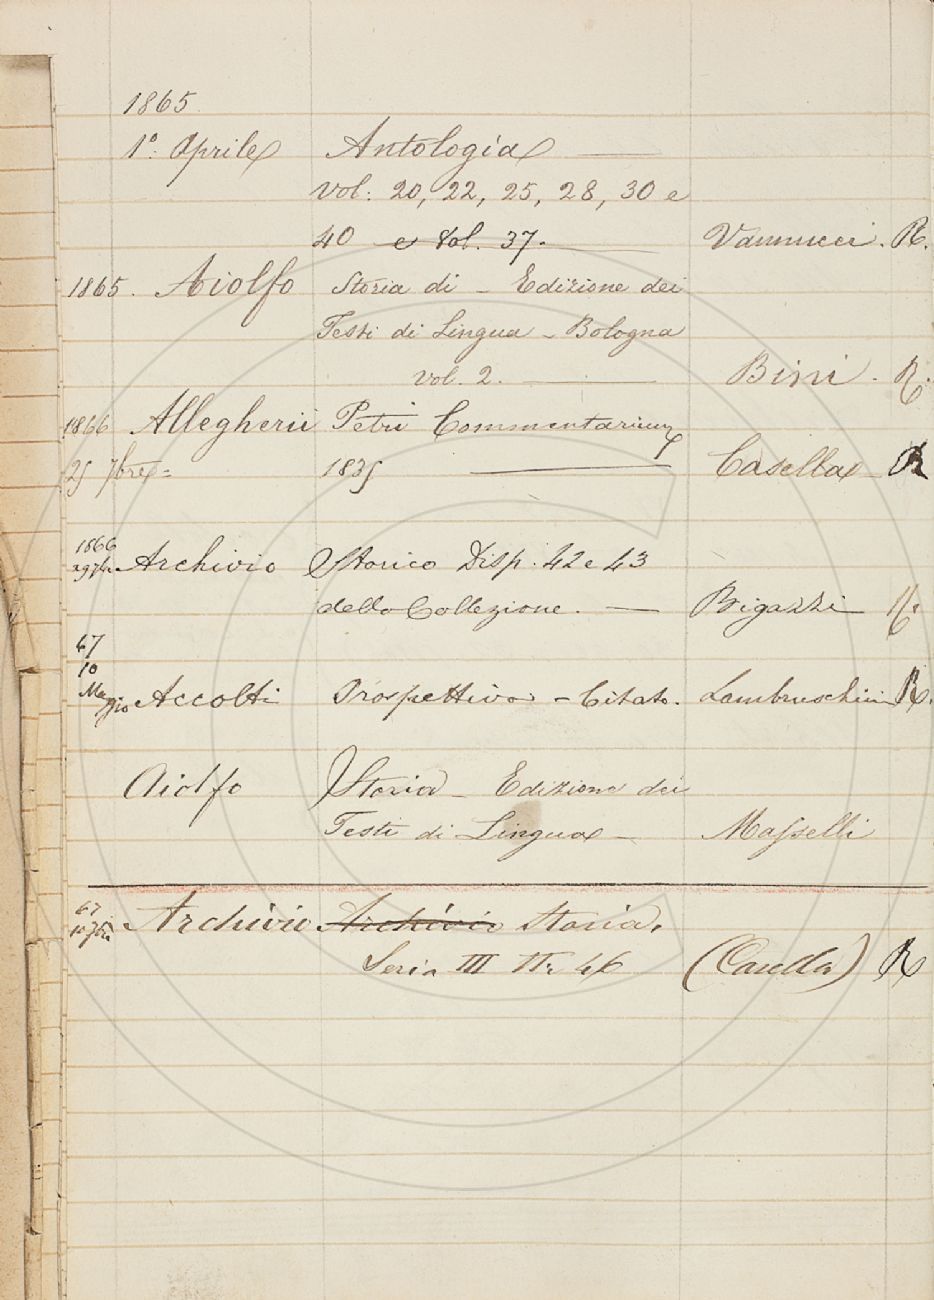 1865
1º: Aprile Antologia
vol: 20, 22, 25, 28, 30 e
40 e Vol. 37. Vannucci. R.
1865. Aiolfo Storia di - Edizione dei
Testi di Lingua - Bologna
vol. 2. Bini. R.
1866 Allegherii Petri Commentarium
25 7bre= 1835 Casella R
1866
29 7bre Archivio Storico Disp. 42 e 43
della Collezione. Brigazzi R.
67
10
Maggio Accolti Prospettiva - Citato. Lambruschini R.
Aiolfo Storia - Edizione dei
Testi di Lingua - Masselli
67
Archivio Archivio Storia.
Seria III 46 (Casella) R